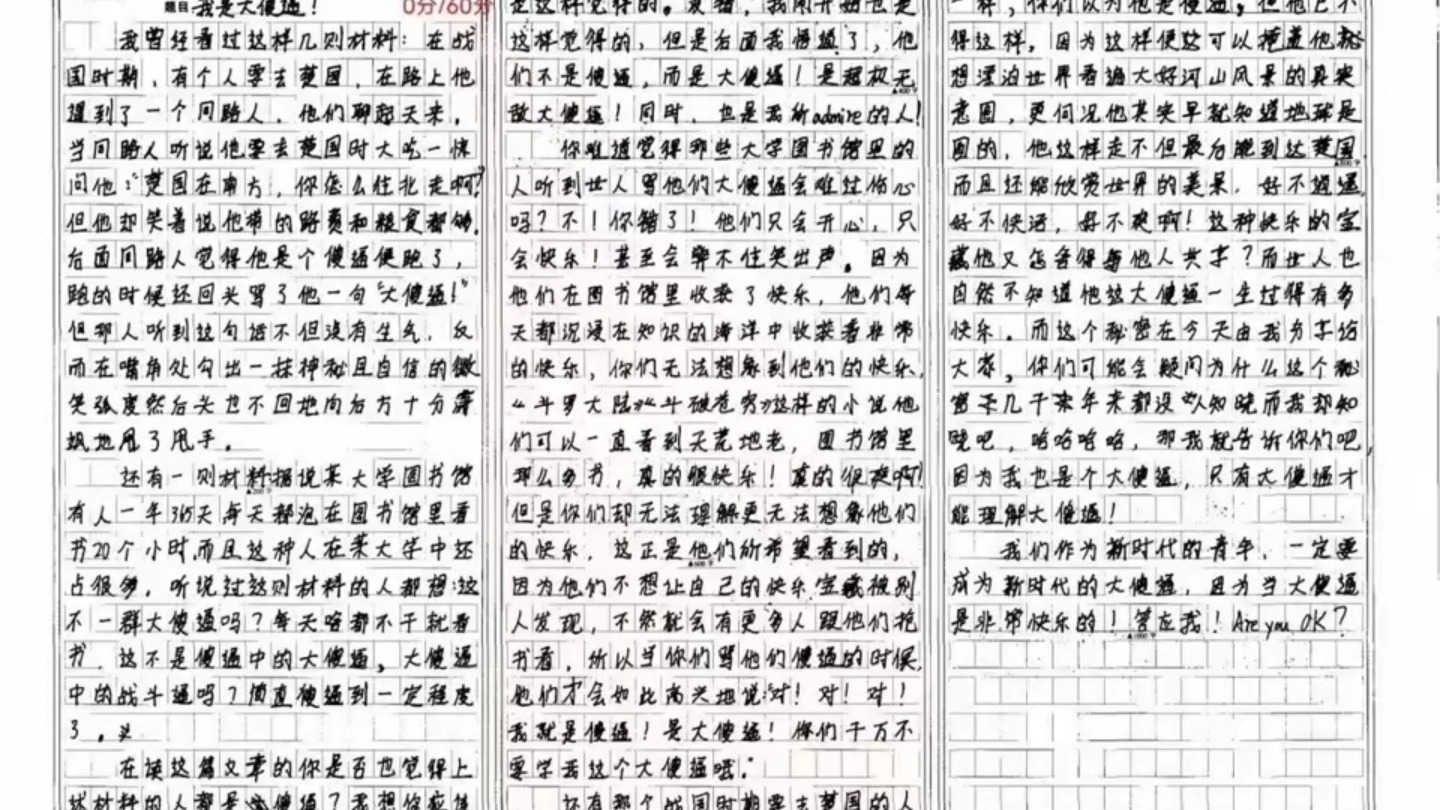 题目 我是大傻逼！
0分/60分
我曾经看过这样几则材料：在战
国时期，有个人要去楚国，在路上他
遇到了一个问路人，他们聊起天来，
当问路人听说他要去楚国时大吃一惊
问他："楚国在南方，你怎么往北走啊？"
但他却笑着说他带的路费和粮食都够，
后面问路人觉得他是个傻逼便跑了，
跑的时候还回头骂了他一句"大傻逼！"
但那人听到这句话不但没有生气，反
而在嘴角处勾出一抹神秘且自信的微
笑弧度然后头也不回地向后方十分潇
飒地甩了甩手。
还有一则材料据说某大学图书馆
有人一年365天每天都泡在图书馆里看
书20个小时，而且这种人在某大学中还
占很多。听说过这则材料的人都想：这
不一群大傻逼吗？每天啥都不干就看
书，这不是傻逼中的大傻逼，大傻逼
中的战斗逼吗？简直傻逼到一定程度
了。
在读这篇文章的你是否也觉得上
是这样觉得的。
我刚开始也是
这样觉得的，但是后面我悟透了，他
们不是傻逼，而是大傻逼！是超级无
敌大傻逼！同时，也是我所admire的人！
你难道觉得那些大学图书馆里的
人听到世人骂他们大傻逼会难过伤心
吗？不！你错了！他们只会开心，只
会快乐！甚至会弊不住笑出声。因为
他们在图书馆里收获了快乐，他们每
天都沉浸在知识的海洋中收获着非常
的快乐，你们无法想象到他们的快乐，
《斗罗大陆》《斗破苍穷》这样的小说他
们可以一直看到天荒地老，图书馆里
那么多书，真的很快乐！真的很爽啊！
但是你们却无法理解更无法想象他们
的快乐，这正是他们所希望看到的，
因为他们不想让自己的快乐宝藏被别
人发现，不然就会有更多人跟他们抢
书看，所以当你们骂他们傻逼的时候，
他们才会如此高兴地说："对！对！对！
我就是傻逼！是大傻逼！你们千万不
要学我这个大傻逼哦。"
还有那个战国时期要去楚国的人
一样，你们以为他是傻逼，但他已不
得这样，因为这样便这可以掩盖他就
想漂泊世界看遍大好河山风景的真实
意图，更何况他其实早就知道地球是
圆的，他这样走不但最后能到达楚国
而且还能欣赏世界的美景，好不逍遥，
好不快活，好不爽啊！这种快乐的宝
藏他又怎舍得与他人共享？而世人也
自然不知道他这大傻逼一生过得有多
快乐。而这个秘密在今天由我分享给
大家，你们可能会疑问为什么这个秘
密几千来年来都没人知晓而我却知
晓吧，哈哈哈哈，那我就告诉你们吧，
因为我也是个大傻逼，只有大傻逼才
能理解大傻逼！
我们作为新时代的青年，一定要
成为新时代的大傻逼，因为当大傻逼
是非常快乐的！答在我！Are you OK？